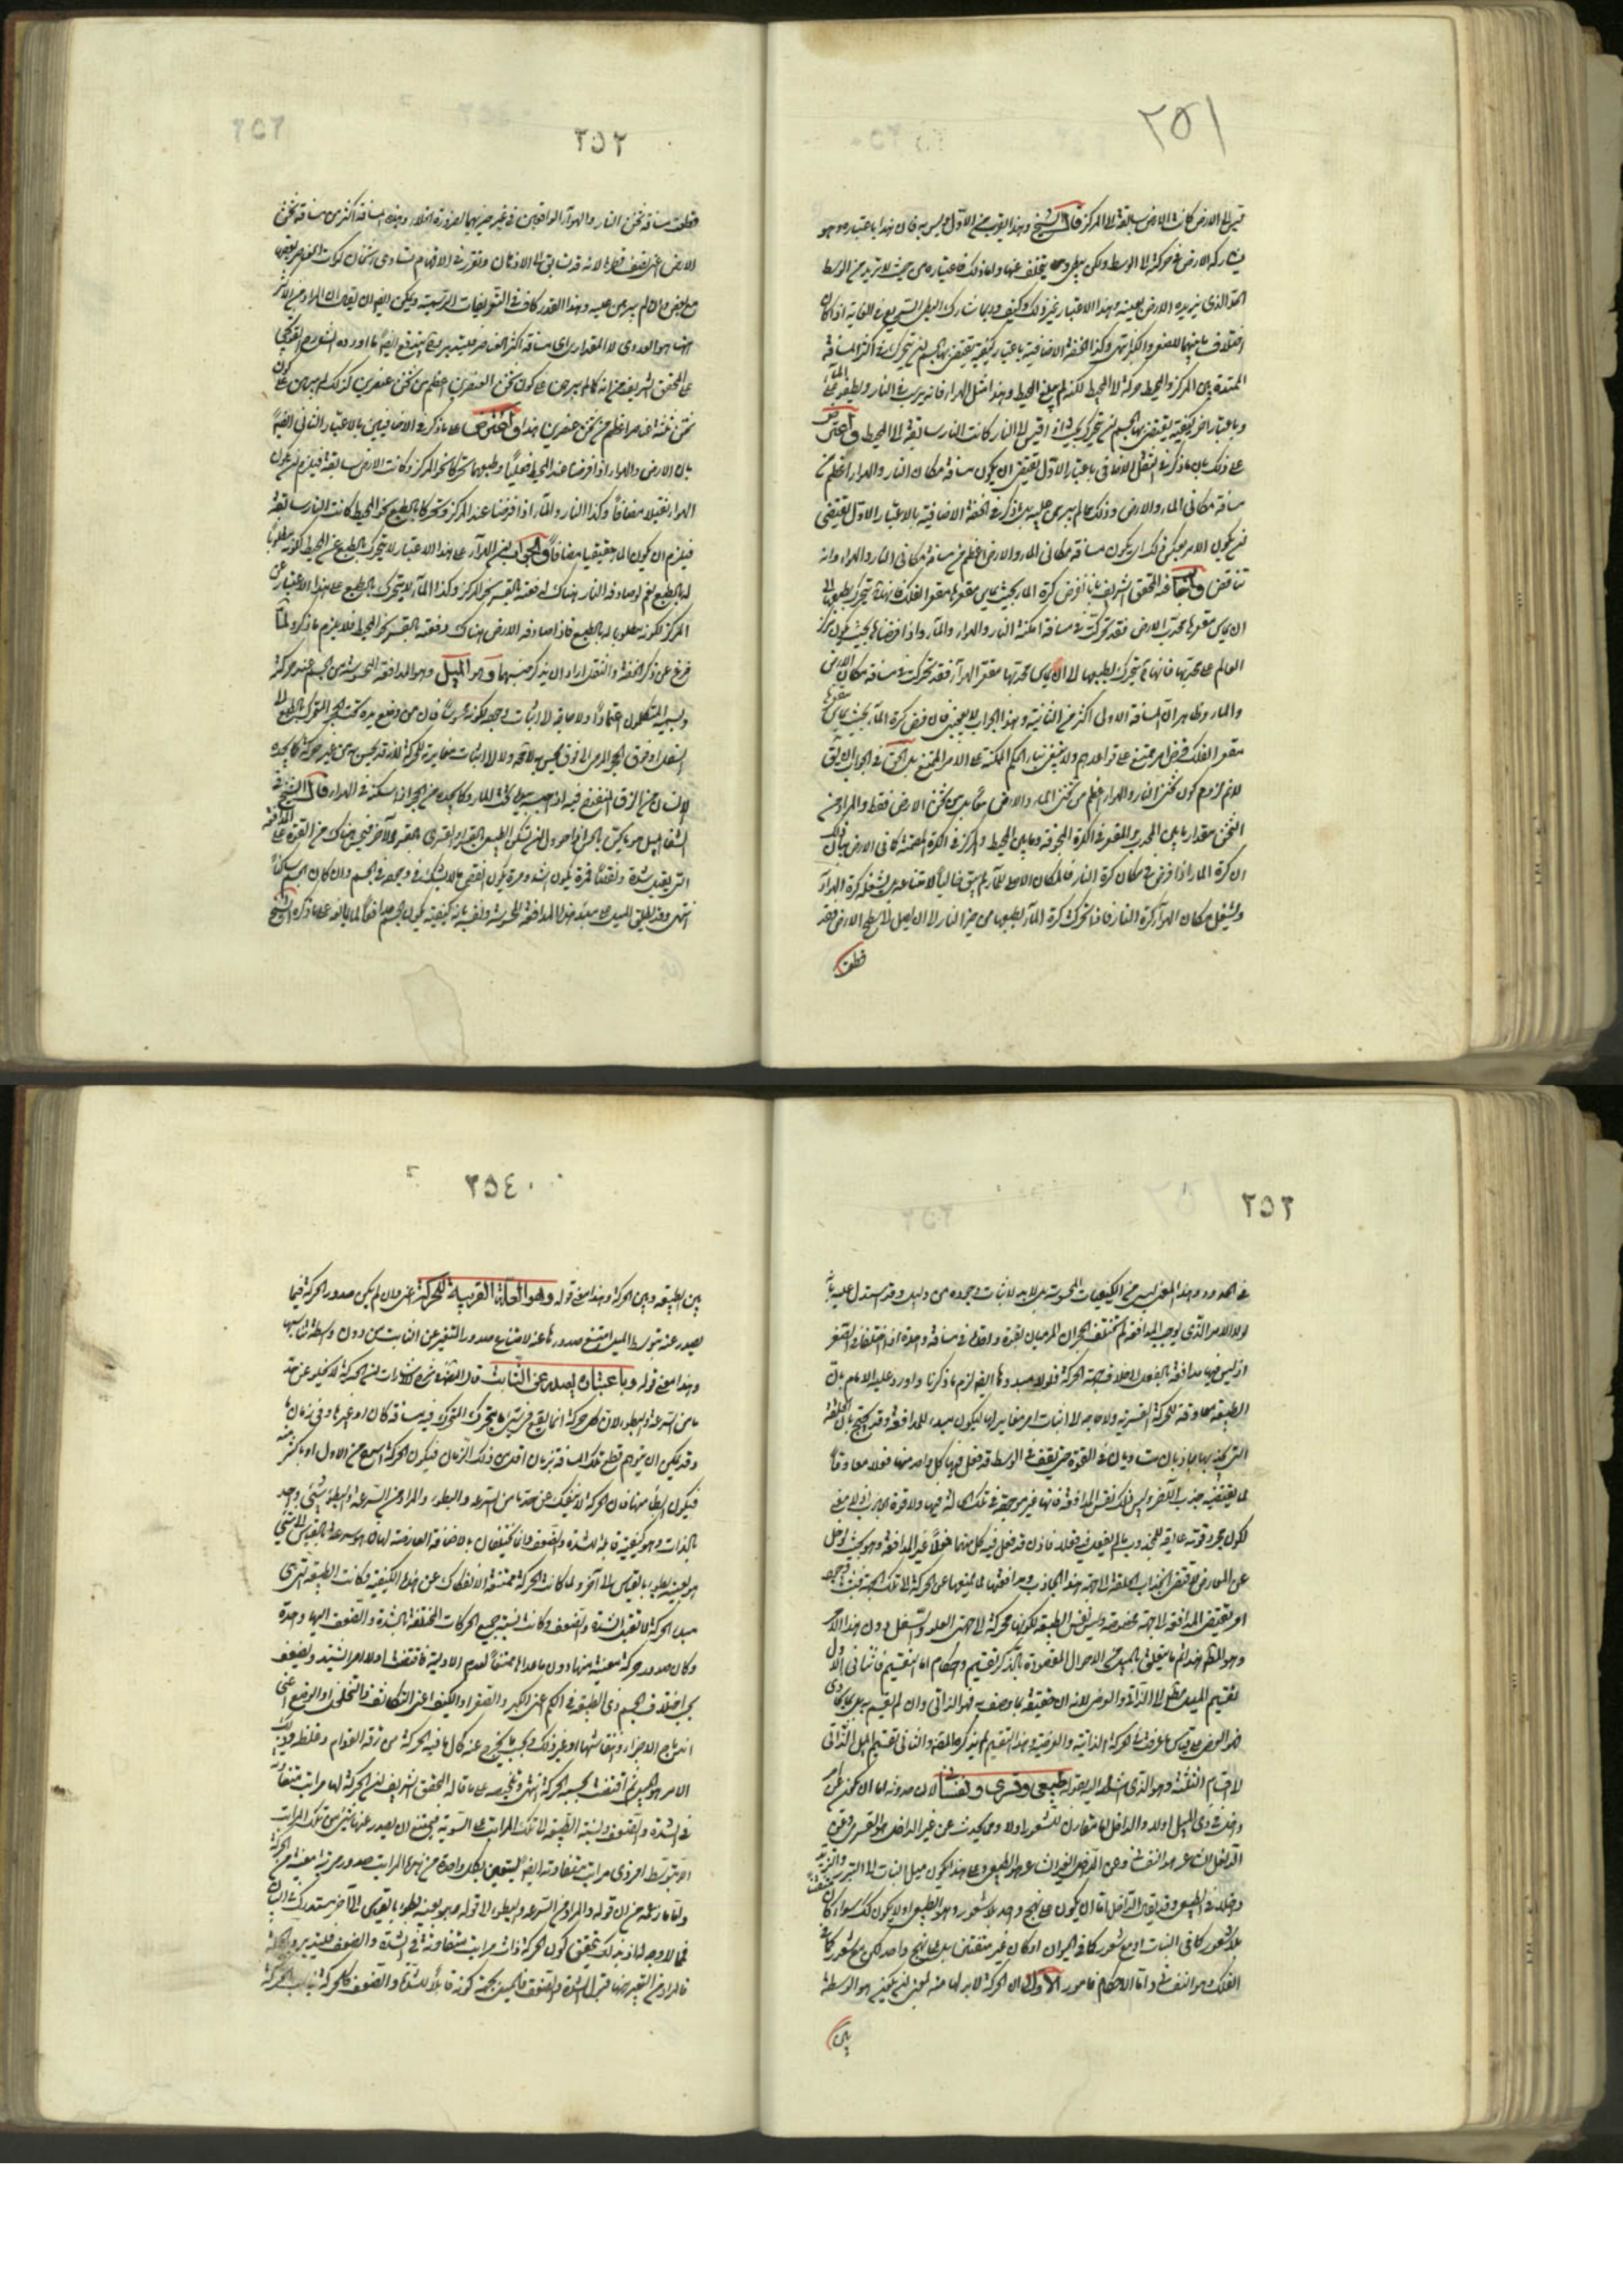 ٢٥١
قيس إلى الارض كانت الارض سابقة الى المركز قال الشيخ وهذا القرب من الأول وليس به فان هذا باعتباره وهو
يشارك الارض في حركته الى الوسط ولكن يبطئ ويتخلف عنها ولذلك فاعتباره من حيث لا يريد من الوسط
الحد الذي يريده الارض بعينه وهذا الاعتبار غير ذلك وكيف وربما شارك البطئ السريع في الغاية اذا كان
اختلاف ما بينهما للصغر والكبر انتهى وكذا الخفة الاضافية باعتبار كيفية يقتضي بها الجسم ان يتحرك في اكثر المسافة
الممتدة بين المركز والمحيط حركة الى المحيط لكنه لم يبلغ المحيط وهذا مثل الهواء فانه يرسب في النار ويطفو على الماء
وباعتبار آخر كيفية يقتضي بها الجسم ان يتحرك بحيث اذا قيس الى النار كانت النار سابقة الى المحيط واعترض
على ذلك بان ما ذكر في الثقل الاضافي باعتبار الأول يقتضي ان يكون مسافة مكان النار والهواء اعظم من
مسافة مكاني الماء والارض وذلك مما لم يبرهن عليه بل ما ذكر في الخفة الاضافية بالاعتبار الاول يقتضي
ان يكون الامر بعكس ذلك اي يكون مسافة مكاني الماء والارض اعظم من مسافة مكاني النار والهواء وانه
تناقض واجاب عنه المحقق الشريف بانا نفرض كرة الماء بحيث يماس مقعرها مقعر الفلك فانها ح يتحرك بطبعها الى
ان يماس مقعرها محدب الارض فقد تحركت في مسافة امكنة النار والهواء والماء واذا فرضناها بحيث يكون مركز
العالم على محدبها فانها ح يتحرك بطبعها الى ان يماس محدبها مقعر الهواء فقد تحركت في مسافة مكان الارض
والماء وظاهر ان المسافة الاولى اكثر من الثانية وهذا الجواب لا يعجبني فان فرض كرة الماء بحيث يماس مقعرها
مقعر الفلك فرض امر ممتنع على قواعدهم ولا ينبغي بناء الحكم الممكنة على الامر الممتنع بل الحق في الجواب ان يقال
لانم لزوم كون ثخن النار والهواء اعظم من ثخن الماء والارض معاً بل من ثخن الارض فقط والمراد من
الثخن مقدار ما بين المحدب والمقعر في الكرة المجوفة وما بين المحيط والمركز في الكرة المصمتة كما في الارض بيان ذلك
ان كرة الماء اذا فرض في مكان كرة النار فالمكان الاصلي للماء لم يبق خالياً لامتناعه بل يشغله كرة الهواء
ويشغل مكان الهواء كرة النار فاذا تحركت كرة الماء بطبعها من حيز النار الى ان يصل الى سطح الارض فقد
قطعت
٢٥٢
قطعت مسافة ثخن النار والهواء الواقعين في غير حيزيهما لضرورة الخلاء وهذه المسافة اكثر من مسافة ثخن
الارض اعني نصف قطرها لانه قد سبق الى الاذهان وتقرر في الافهام تساوي اثخان كرات العناصر بعضها
مع بعض وان لم يبرهن عليه وهذا القدر كاف في التعريفات الرسمية ويمكن ايضا ان يقال ان المراد من الاكثر
انما هو العددي لا المقداري اي مسافة اكثر
على المحقق الشريف من انه كما لم يبرهن على كون ثخن العنصرين اعظم من ثخن عنصرين كذلك لم يبرهن على كون
ثخن ثلثة عناصر اعظم من ثخن عنصرين هذا واعترض على ما ذكر في الاضافيين بالاعتبار الثاني ايضاً
بان الارض والهواء اذا فرضنا عند المحيط فخليا وطبعهما تحركا نحو المركز وكانت الارض سابقة فيلزم ان يكون
الهواء ثقيلا مضافاً وكذا النار والماء اذا فرضنا عند المركز وتحركا بالطبع نحو المحيط كانت النار سابقة
فيلزم ان يكون الماء خفيفا مضافاً والجواب ان الهواء على هذا الاعتبار لا يتحرك بالطبع عن المحيط لكونه مطلوبا
له بالطبع نعم لو صادفه النار هناك دفعته بالقسر نحو المركز وكذا الماء لا يتحرك بالطبع على هذا الاعتبار عن
المركز لكونه مطلوبا له بالطبع فاذا صادفه الارض هناك دفعته بالقسر نحو المحيط فلا يلزم ما ذكر ولما
فرغ عن ذكر الخفة والثقل اراد ان يذكر جنسهما وهو الميل وهو المدافعة المحسوسة من الجسم عند حركته
ويسميه المتكلمون اعتماداً ولا حاجة الى اثبات وجوده لكونه محسوسا فان من وضع يده تحت الحجر المتحرك بالطبع الى
السفل او فوق الحجر المرمي الى فوق يحس به لا محة ولا الى اثبات مغايرته للحركة لانه قد يحس به من غير حركة كما يجده
الانسان من الزق المنفوخ فيه اذا حبسه بيده تحت الماء وكما يجده من الحجر اذا اسكنه في الهواء قال الشيخ في
الشفاء الميل هو ما يكون بالحس اذا حوول ان يسكن الطبيعي بالقسر او القسري بالقسر الآخر فيحس هناك من القوة على المدافعة
التي يقبل شدة ونقصا فمرة يكون اشد ومرة يكون انقص مما لا يشك في وجوده في الجسم وان كان الجسم ساكناً
انتهى وقد يطلق الميل على مبدأ هذه المدافعة المحسوسة ويفسر بانه كيفية يكون بها الجسم مدافعاً لما يمانعه على ما ذكره الشيخ
٢٥٣
في الحدود وهذا المعنى ليس من الكيفيات المحسوسة بل لابد لاثبات وجوده من دليل وقد استدل عليه بانه
لولا الامر الذي يوجب المدافعة لم تختلف الحجران المرميان بقوة واحدة في مسافة واحدة اذا اختلفا في الصغر
اذ ليس فيهما مدافعة بالفعل الى خلاف جهة الحركة فلولا مبدؤها ايضا لزم ما ذكرنا واورد عليه الامام بان
الطبيعة معاوقة للحركة القسرية ولا حاجة الى اثبات امر مغاير لها ليكون مبدء للمدافعة وقد يحتج بان الحلقة
التي يجذبها جاذبان متساويان في القوة حتى يقف في الوسط قد فعل فيها كل واحد منهما فعلا معاوقا
لما يقتضيه جذب الآخر وليس ذلك نفس المدافعة فانها غير موجودة في تلك الحالة فيها ولا قوة
عن المعارض لاقتضى انجذاب الحلقة الى جهة
امر يقتضي المدافعة الى جهة مخصوصة وليس نفس الطبيعة لكونها محركة الى جهتي العلو والسفل دون هذا الامر
وهو المط هذا ثم ما يتعلق بالميل من الاحوال المقصودة بالذكر تقسيم واحكام اما التقسيم فاثنان الاول
تقسيم الميل مطلقا الى الذاتي والعرضي لانه ان
فهو العرضي على قياس ما عرفت في الحركة الذاتية والعرضية وهذا التقسيم لم يذكره المصنف والثاني تقسيم الميل الذاتي
الى اقسام الثلثة وهو الذي اشار اليه بقوله طبيعي وقسري ونفساني لان حدوثه اما ان يكون عن امر
داخل في ذي الميل اولا والداخل اما متقارن للشعور اولا وما يحدث عن غير الداخل هو القسري وعن
الداخل الشاعر هو النفساني وعن الداخل الغير الشاعر هو الطبيعي وعلى هذا يكون ميل النبات الى التبرز والتزيد
داخلا في الطبيعي وقد يقال الداخل اما ان يكون على نهج واحد بلا شعور وهو الطبيعي اولا يكون كذلك سواء كان
بلا شعور كما في النبات او مع شعور كما في الحيوان اذ كان غير متفنن بل على نهج واحد لكن مع شعور كما في
الفلك وهو النفساني واما الاحكام فامور الاول ان الحركة لابد لها منه بمعنى ان يكون هو الواسطة
بين
٢٥٤
بين الطبيعة وبين الحركة وهذا معنى قوله وهو العلة القريبة للحركة اعني وان لم يكن صدور الحركة فيما
يصدر عنه بتوسط الميل امتنع صدورها عنه لامتناع صدور المتغير عن الثابت من دون واسطة تناسبها
وهذا معنى قوله وباعتباره يصدر عن الثابت قال المصنف في شرح الاشارات ان الحركة لا تخلو عن حد
ما من السرعة والبطء لان كل حركة انما يقع في شيء ما يتحرك المتحرك فيه مسافة كان او غيرها وفي زمان ما
وقد يمكن ان يتوهم قطع تلك المسافة بزمان اقل من ذلك الزمان فيكون الحركة اسرع من الاول او باكثر منه
فيكون ابطأ منها فان الحركة لا ينفك عن حد ما من السرعة والبطء والمراد من السرعة والبطء شيء واحد
بالذات وهو كيفية قابلة للشدة والضعف وانما يختلفان بالاضافة العارضة لهما فما هو سرعة بالقياس الى شيء
هو بعينه بطء بالقياس الى آخر ولما كانت الحركة ممتنعة الانفكاك عن هذه الكيفية وكانت الطبيعة التي هي
مبدء الحركة لا تقبل الشدة والضعف وكانت نسبة جميع الحركات المختلفة بالشدة والضعف اليها واحدة
وكان صدور حركة معينة منها دون ما عداها ممتنعاً لعدم الاولوية فاقتضت اولا امرا يشتد ويضعف
بحسب اختلاف الجسم ذي الطبيعة في الكم اعني الكبر والصغر او الكيف اعني التكاثف والتخلخل او الوضع اعني
اندماج الاجزاء وانتفاشها او غير ذلك وبحسب ما يخرج عنه كحال ما فيه الحركة من رقة القوام وغلظه وذلك
الامر هو الميل ثم اقتضت بحسبه الحركة انتهى وتلخيصه على ما قاله المحقق الشريف ان الحركة لها مراتب متفاوتة
في الشدة والضعف ونسبة الطبيعة الى تلك المراتب على السوية فيمتنع ان يصدر عنها شيء من تلك المراتب
الا بتوسط امر ذي مراتب متفاوتة ايضا ليتعين بكل واحدة من هذه المراتب صدور مرتبة معينة من الحركة
فما لا وجه له اذ بذلك يتحقق كون الحركة ذات مراتب متفاوتة في الشدة والضعف فليتدبر